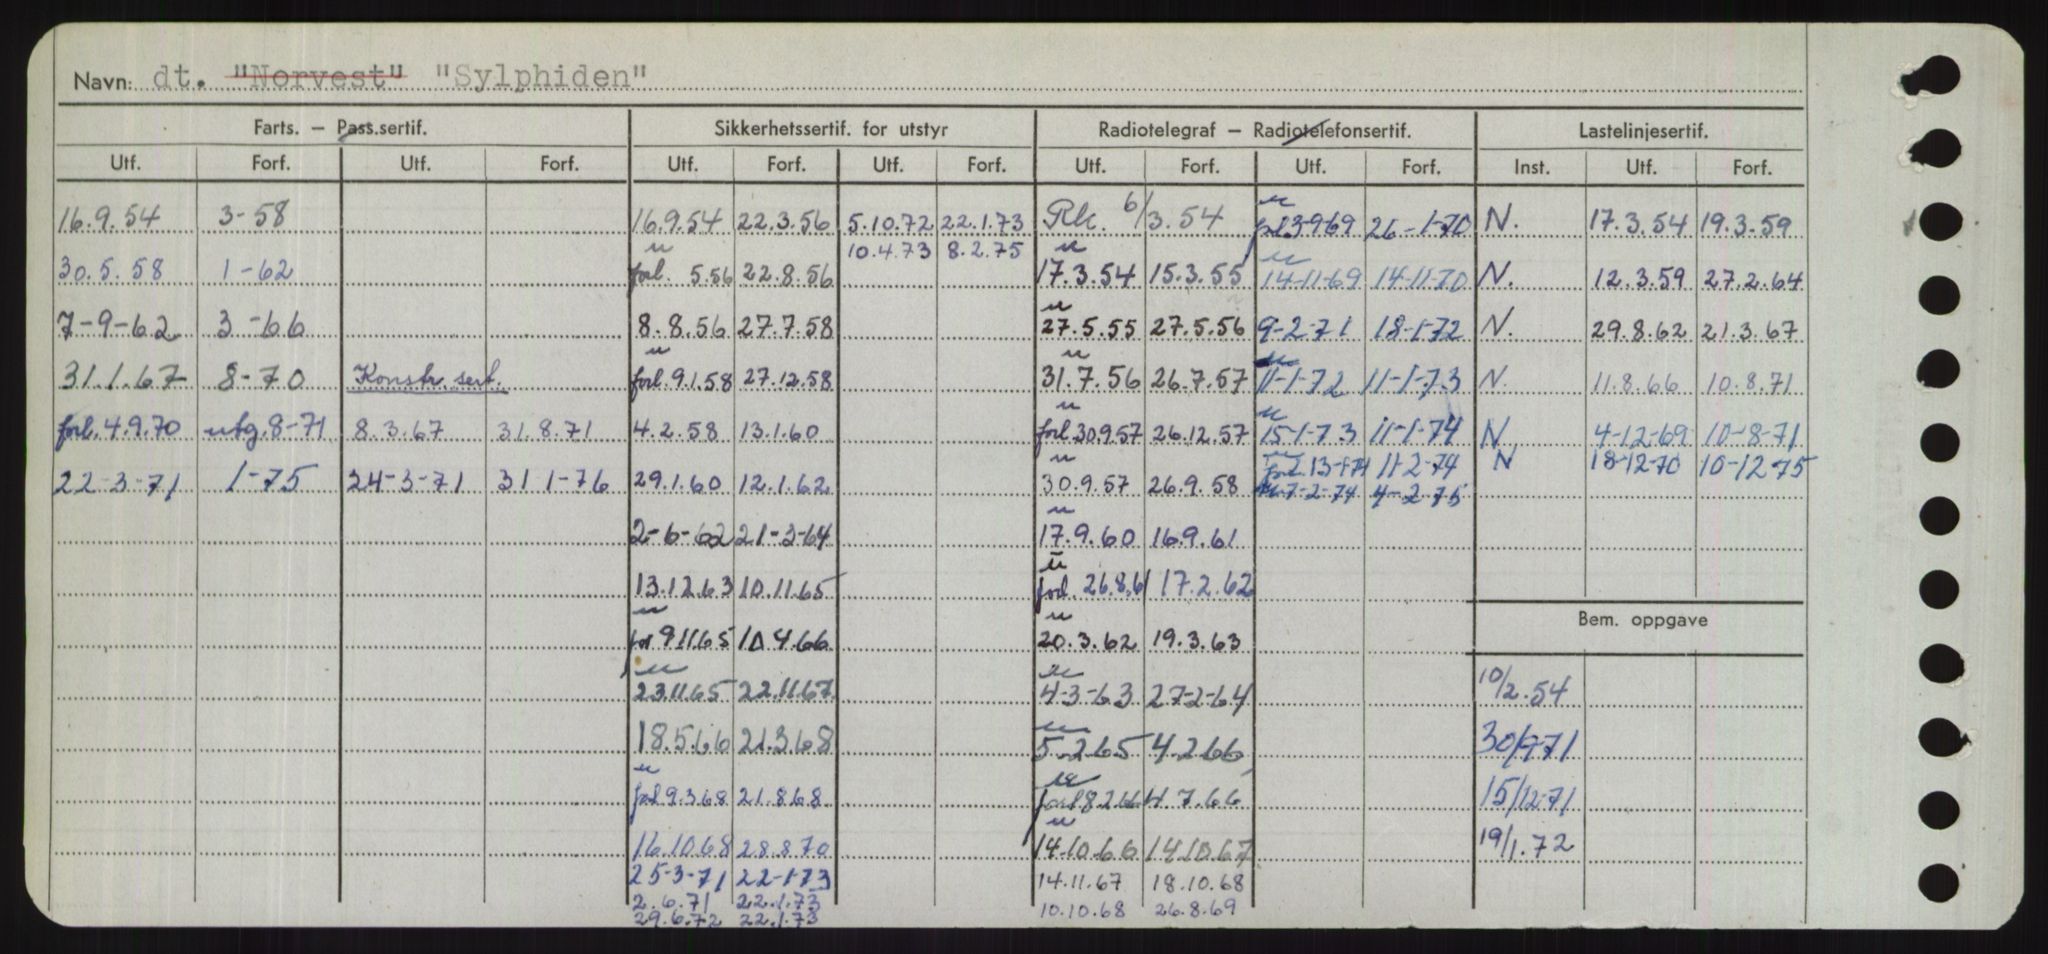 Navn: dt. "Norvest" "Sylphiden"
Farts. – Pass.sertif. Sikkerhetssertif. for utstyr Radiotelegraf – Radiotelefonsertif. Lastelinjesertif.
Utf. Forf. Utf. Forf. Utf. Forf. Utf. Forf. Utf. Forf. Utf. Forf. Inst. Utf. Forf.
16.9.54 3-58 16.9.54 22.3.56 5.10.72 22.1.73 Rk. 6/3.54 forl.3-9-69 26-1-70 N. 17.3.54 19.3.59
10.4.73 8.2.75
30.5.58 1-62 forl. 5.56 22.8.56 17.3.54 15.3.55 14-11-69 14-11-70 N. 12.3.59 27.2.64
7-9-62 3-66 8.8.56 27.7.58 27.5.55 27.5.56 9-2-71 18-1-72 N. 29.8.62 21.3.67
31.1.67 8-70 Konstr. sert. forl.9.1.58 27.12.58 31.7.56 26.7.57 11-1-72 11-1-73 N. 11.8.66 10.8.71
forl.4.9.70 utg.8-71 8.3.67 31.8.71 4.2.58 13.1.60 forl.30.9.57 26.12.57 15-1-73 11-1-74 N 4-12-69 10-8-71
forl.13-1-74 11-2-74 N 18-12-70 10-12-75
22-3-71 1-75 24-3-71 31 1-76 29.1.60 12.1.62 30.9.57 26.9.58 7-2-74 4-2-75
2-6-62 21-3-64 17.9.60 16.9.61
13.12.63 10.11.65 forl. 26.8.61 17.2.62
Bem. oppgave
for 9.11.65 10.4.66 20.3.62 19.3.63
23.11.65 22.11.67 4-3-63 27-2-64 10/2.54
18.5.66 21.3.68 5.2.65 4.2.66 30/9-71
forl 9.3.68 21.8.68 forl 8.2.66 4.7.66 15/12-71
16.10.68 28.8.70 14.10.66 14.10.67 19/1.72
25-3-71 22-1-73 14.11.67 18.10.68
2.6.71 22.1.73 10.10.68 26.8.69
29.6.72 22.1.73